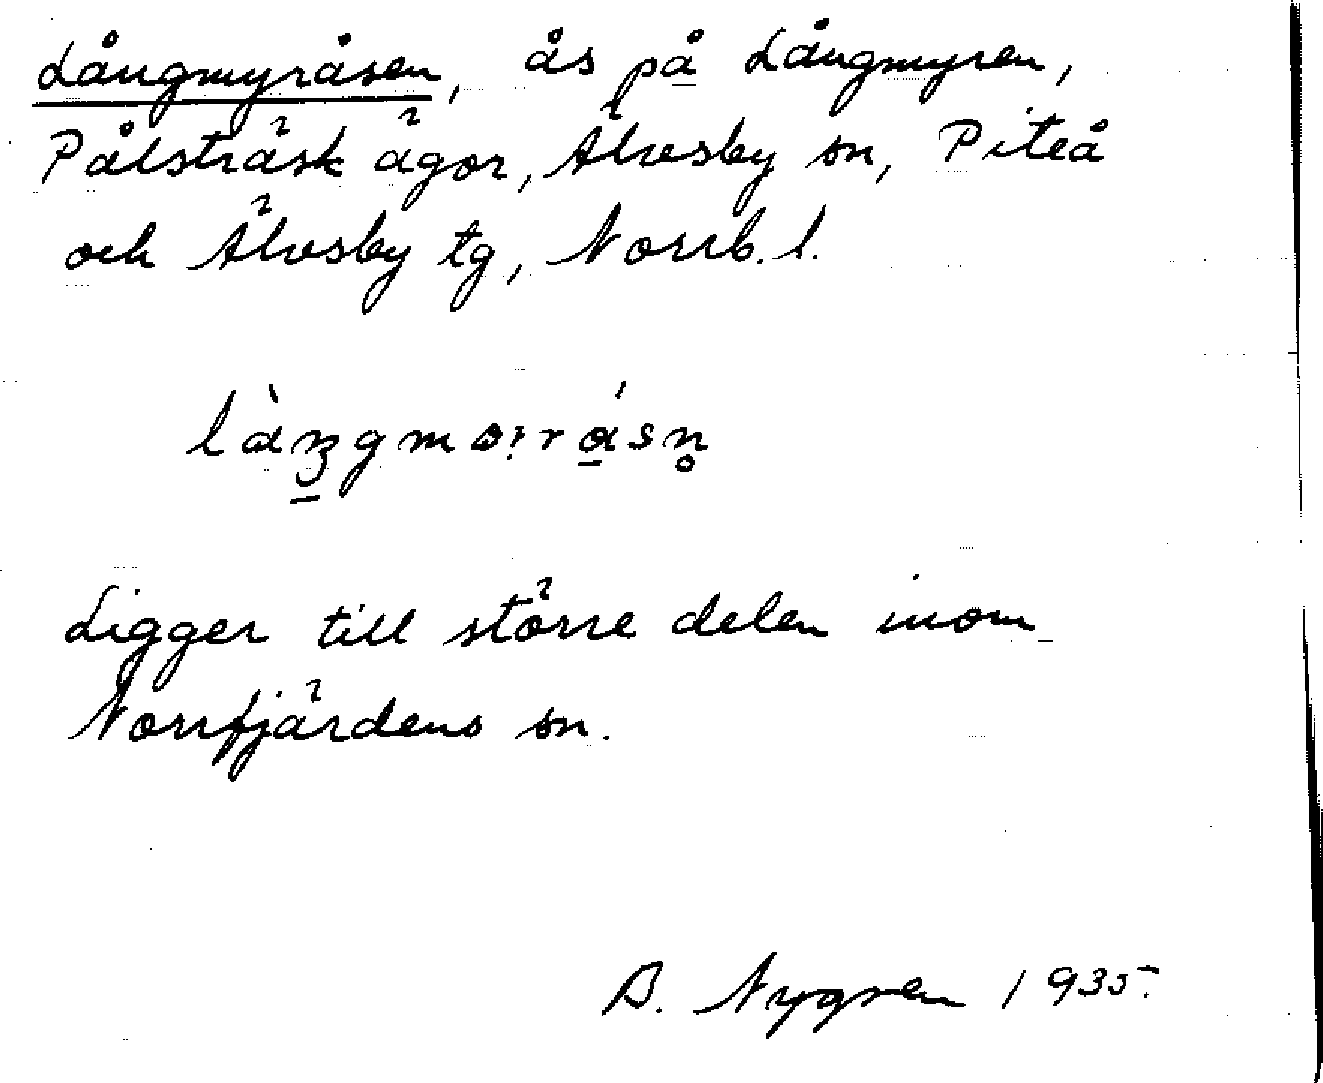 Långmyråsen, ås på Långmyren,
Pålsträsk ägor, Älvsby sn, Piteå
och Älvsby tg, Norrb. l.
Ligger till större delen inom
Norrfjärdens sn.
B. Nygren 1935.